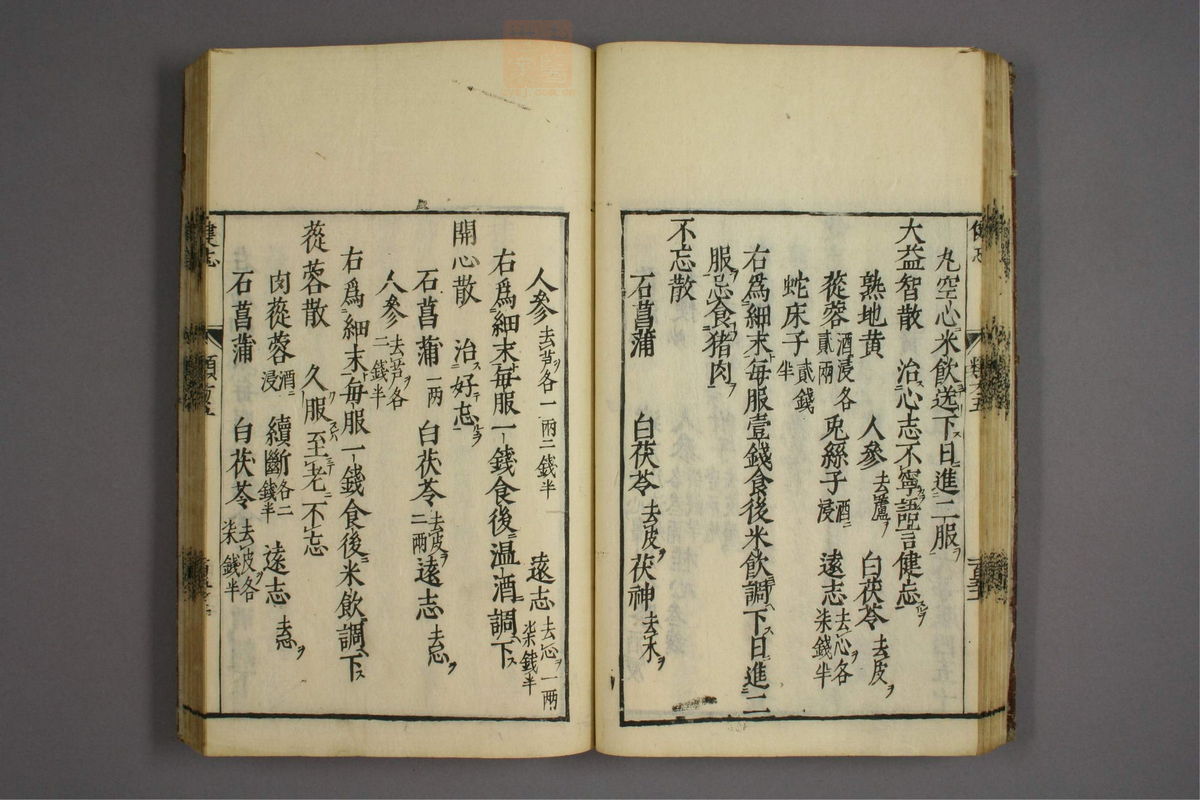 丸空心米飲送下日進二服
大益智散 治心志不寧語言健忘
熟地黄 人參去蘆 白茯苓去皮
蓯蓉酒浸各貳兩 兎絲子酒浸 遠志去心各柒錢半
蛇床子貳錢半
右爲細末毎服壹錢食後米飲調下日進二
服忌食猪肉
不忘散
石菖蒲 白茯苓去皮 茯神去木
人參去芦各一兩二錢半 遠志去心一兩柒錢半
右爲細末毎服一錢食後温酒調下
開心散 治好忘
石菖蒲一兩 白茯苓去皮二兩 遠志去心
人參去芦各二錢半
右爲細末毎服一錢食後米飲調下
蓯蓉散 久服至老不忘
肉蓯蓉酒浸 續斷各二錢半 遠志去心
石菖蒲 白茯苓去皮各柒錢半
健忘